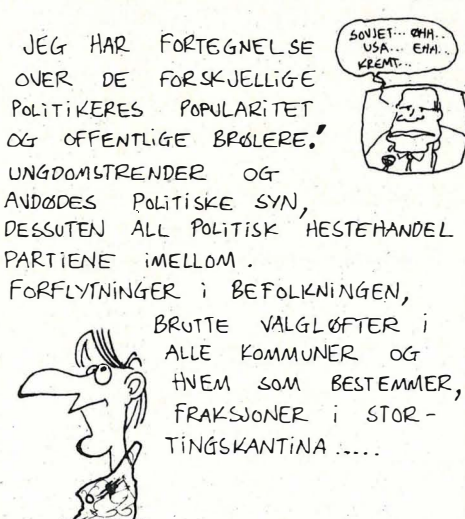 JEG HAR FORTEGNELSE
OVER DE FORSKJELLIGE
POLITIKERES POPULARITET
OG OFFENTLIGE BRØLERE!
UNGDOMSTRENDER OG
AVDØDES POLITISKE SYN,
DESSUTEN ALL POLITISK HESTEHANDEL
PARTIENE IMELLOM.
FORFLYTNINGER I BEFOLKNINGEN,
BRUTTE VALGLØFTER I
ALLE KOMMUNER OG
HVEM SOM BESTEMMER,
FRAKSJONER I STOR-
TINGSKANTINA.....
SOVJET... ØHH..
USA... EHH..
KREMT...